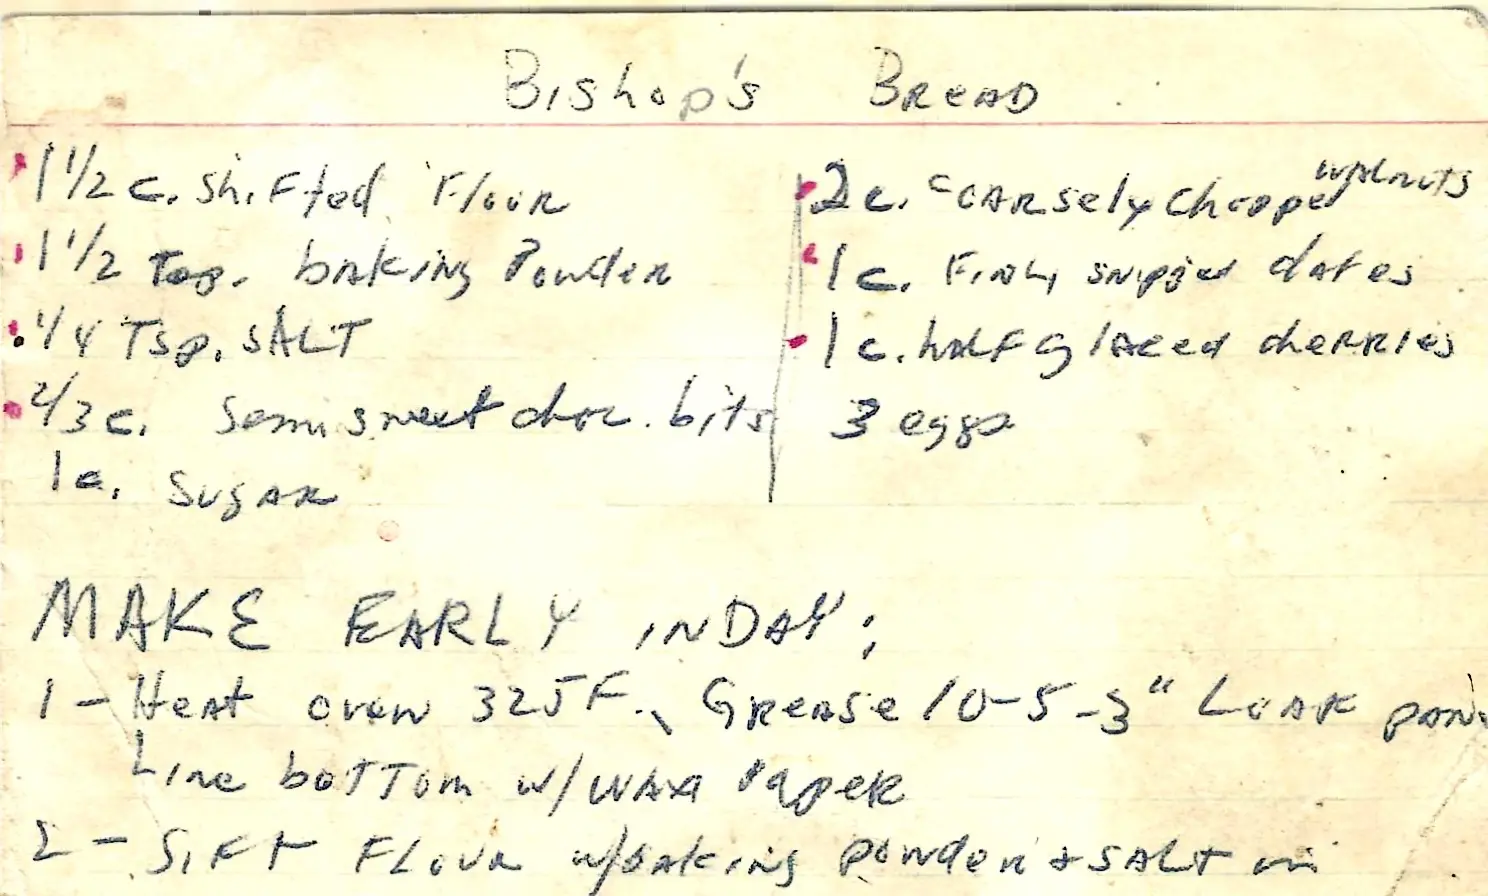 Bishop's BREAD
1 1/2 c. shifted Flour
1 1/2 Tsp. baking Powder
1/4 Tsp. SALT
2/3 c. semi sweet choc. bits
1 c. SUGAR
2 c. coarsely chopped walnuts
1 c. Finly snipped dates
1 c. half glaced cherries
3 eggs
MAKE EARLY IN DAY;
1 - Heat oven 325 F., Grease 10-5-3" Loaf pan.
Line bottom w/ wax Paper
2 - Sift Flour w/baking powder + SALT in